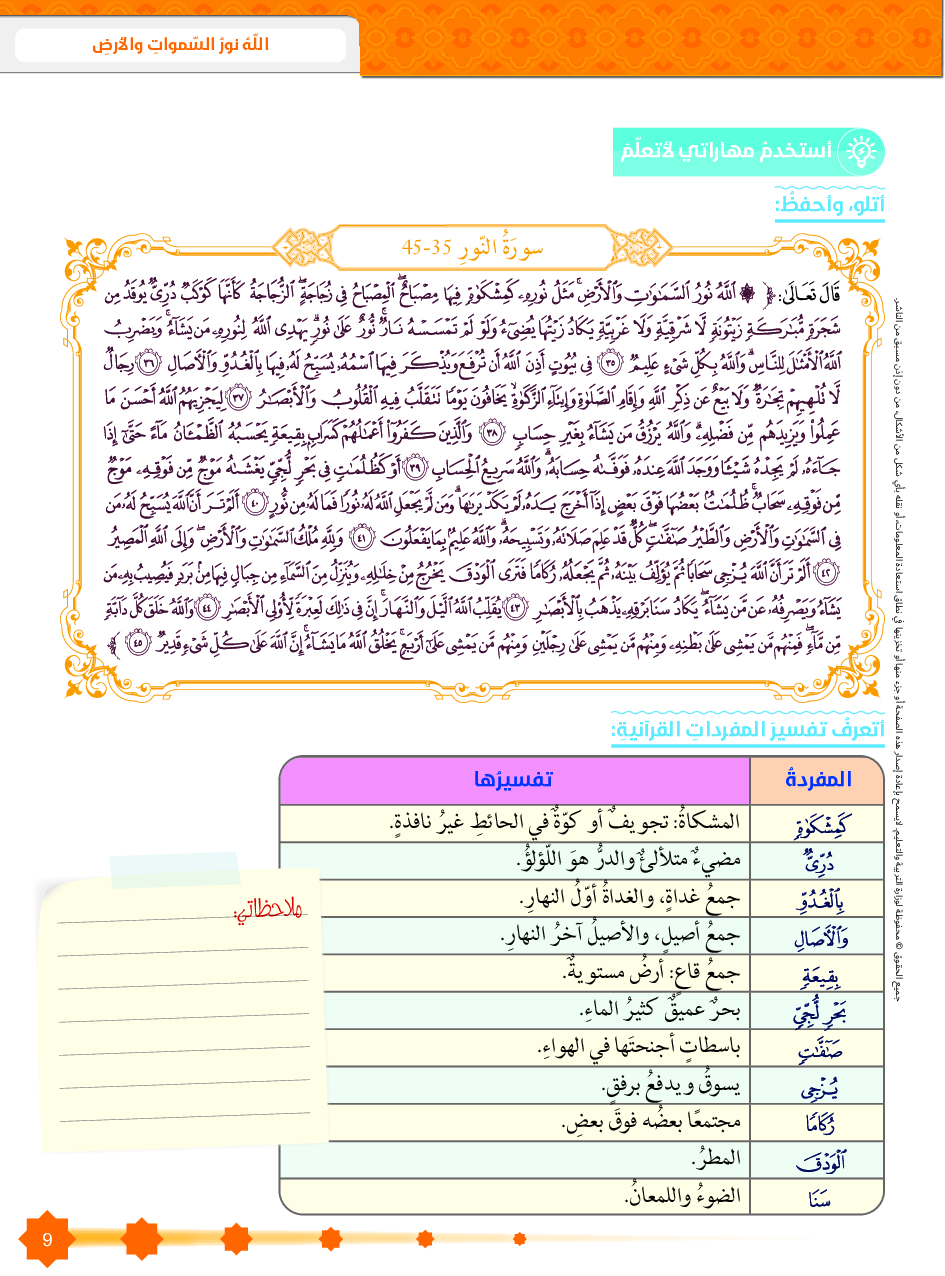 اللّهُ نورُ السّمواتِ والأرضِ
أستخدمُ مهاراتي لأتعلّمَ
أتلو، وأحفظُ:
سورَةُ النّورِ 35-45
قَالَ تَعَالَىٰ: ﴿ ۞ ٱللَّهُ نُورُ ٱلسَّمَٰوَٰتِ وَٱلْأَرْضِ ۚ مَثَلُ نُورِهِۦ كَمِشْكَوٰةٍ فِيهَا مِصْبَاحٌ ۖ ٱلْمِصْبَاحُ فِي زُجَاجَةٍ ۖ ٱلزُّجَاجَةُ كَأَنَّهَا كَوْكَبٌ دُرِّىٌّ يُوقَدُ مِن
شَجَرَةٍ مُّبَٰرَكَةٍ زَيْتُونَةٍ لَّا شَرْقِيَّةٍ وَلَا غَرْبِيَّةٍ يَكَادُ زَيْتُهَا يُضِىٓءُ وَلَوْ لَمْ تَمْسَسْهُ نَارٌ ۚ نُّورٌ عَلَىٰ نُورٍ ۗ يَهْدِى ٱللَّهُ لِنُورِهِۦ مَن يَشَآءُ ۚ وَيَضْرِبُ
ٱللَّهُ ٱلْأَمْثَٰلَ لِلنَّاسِ ۗ وَٱللَّهُ بِكُلِّ شَىْءٍ عَلِيمٌ ﴿٣٥﴾ فِى بُيُوتٍ أَذِنَ ٱللَّهُ أَن تُرْفَعَ وَيُذْكَرَ فِيهَا ٱسْمُهُۥ يُسَبِّحُ لَهُۥ فِيهَا بِٱلْغُدُوِّ وَٱلْأَصَالِ ﴿٣٦﴾ رِجَالٌ
لَّا تُلْهِيهِمْ تِجَٰرَةٌ وَلَا بَيْعٌ عَن ذِكْرِ ٱللَّهِ وَإِقَامِ ٱلصَّلَوٰةِ وَإِيتَآءِ ٱلزَّكَوٰةِ ۙ يَخَافُونَ يَوْمًا تَتَقَلَّبُ فِيهِ ٱلْقُلُوبُ وَٱلْأَبْصَٰرُ ﴿٣٧﴾ لِيَجْزِيَهُمُ ٱللَّهُ أَحْسَنَ مَا
عَمِلُوا۟ وَيَزِيدَهُم مِّن فَضْلِهِۦ ۗ وَٱللَّهُ يَرْزُقُ مَن يَشَآءُ بِغَيْرِ حِسَابٍ ﴿٣٨﴾ وَٱلَّذِينَ كَفَرُوٓا۟ أَعْمَٰلُهُمْ كَسَرَابٍۭ بِقِيعَةٍ يَحْسَبُهُ ٱلظَّمْـَٔانُ مَآءً حَتَّىٰٓ إِذَا
جَآءَهُۥ لَمْ يَجِدْهُ شَيْـًٔا وَوَجَدَ ٱللَّهَ عِندَهُۥ فَوَفَّىٰهُ حِسَابَهُۥ ۗ وَٱللَّهُ سَرِيعُ ٱلْحِسَابِ ﴿٣٩﴾ أَوْ كَظُلُمَٰتٍ فِى بَحْرٍ لُّجِّىٍّ يَغْشَىٰهُ مَوْجٌ مِّن فَوْقِهِۦ مَوْجٌ
مِّن فَوْقِهِۦ سَحَابٌ ۚ ظُلُمَٰتٌۢ بَعْضُهَا فَوْقَ بَعْضٍ إِذَآ أَخْرَجَ يَدَهُۥ لَمْ يَكَدْ يَرَىٰهَا ۗ وَمَن لَّمْ يَجْعَلِ ٱللَّهُ لَهُۥ نُورًا فَمَا لَهُۥ مِن نُّورٍ ﴿٤٠﴾ أَلَمْ تَرَ أَنَّ ٱللَّهَ يُسَبِّحُ لَهُۥ مَن
فِى ٱلسَّمَٰوَٰتِ وَٱلْأَرْضِ وَٱلطَّيْرُ صَٰٓفَّٰتٍ ۖ كُلٌّ قَدْ عَلِمَ صَلَاتَهُۥ وَتَسْبِيحَهُۥ ۗ وَٱللَّهُ عَلِيمٌۢ بِمَا يَفْعَلُونَ ﴿٤١﴾ وَلِلَّهِ مُلْكُ ٱلسَّمَٰوَٰتِ وَٱلْأَرْضِ ۖ وَإِلَى ٱللَّهِ ٱلْمَصِيرُ
﴿٤٢﴾ أَلَمْ تَرَ أَنَّ ٱللَّهَ يُزْجِى سَحَابًا ثُمَّ يُؤَلِّفُ بَيْنَهُۥ ثُمَّ يَجْعَلُهُۥ رُكَامًا فَتَرَى ٱلْوَدْقَ يَخْرُجُ مِنْ خِلَٰلِهِۦ وَيُنَزِّلُ مِنَ ٱلسَّمَآءِ مِن جِبَالٍ فِيهَا مِنۢ بَرَدٍ فَيُصِيبُ بِهِۦ مَن
يَشَآءُ وَيَصْرِفُهُۥ عَن مَّن يَشَآءُ ۖ يَكَادُ سَنَا بَرْقِهِۦ يَذْهَبُ بِٱلْأَبْصَٰرِ ﴿٤٣﴾ يُقَلِّبُ ٱللَّهُ ٱلَّيْلَ وَٱلنَّهَارَ ۚ إِنَّ فِى ذَٰلِكَ لَعِبْرَةً لِّأُو۟لِى ٱلْأَبْصَٰرِ ﴿٤٤﴾ وَٱللَّهُ خَلَقَ كُلَّ دَآبَّةٍ
مِّن مَّآءٍ ۖ فَمِنْهُم مَّن يَمْشِى عَلَىٰ بَطْنِهِۦ وَمِنْهُم مَّن يَمْشِى عَلَىٰ رِجْلَيْنِ وَمِنْهُم مَّن يَمْشِى عَلَىٰٓ أَرْبَعٍ ۚ يَخْلُقُ ٱللَّهُ مَا يَشَآءُ ۚ إِنَّ ٱللَّهَ عَلَىٰ كُلِّ شَىْءٍ قَدِيرٌ ﴿٤٥﴾ ﴾
أتعرفُ تفسيرَ المفرداتِ القرآنيةِ:
المفردةُ تفسيرُها
كَمِشْكَوٰةٍ المشكاةُ: تجويفٌ أو كوّةٌ في الحائطِ غيرُ نافذةٍ.
دُرِّىٌّ مضيءٌ متلألئٌ والدرُّ هوَ اللّؤلؤُ.
بِٱلْغُدُوِّ جمعُ غداةٍ، والغداةُ أوّلُ النهارِ.
وَٱلْأَصَالِ جمعُ أصيلٍ، والأصيلُ آخرُ النهارِ.
بِقِيعَةٍ جمعُ قاعٍ: أرضُ مستويةٌ.
بَحْرٍ لُّجِّىٍّ بحرٌ عميقٌ كثيرُ الماءِ.
صَٰٓفَّٰتٍ باسطاتٍ أجنحتَها في الهواءِ.
يُزْجِى يسوقُ ويدفعُ برفقٍ.
رُكَامًا مجتمعًا بعضُه فوقَ بعضٍ.
ٱلْوَدْقَ المطرُ.
سَنَا الضوءُ واللمعانُ.
ملاحظاتي:
جميع الحقوق © محفوظة لوزارة التربية والتعليم. لايسمح بإعادة إصدار هذه الصفحة أو جزء منها أو تخزينها في نطاق استعادة المعلومات، أو نقله بأي شكل من الأشكال، من دون إذن مسبق من الناشر.
9